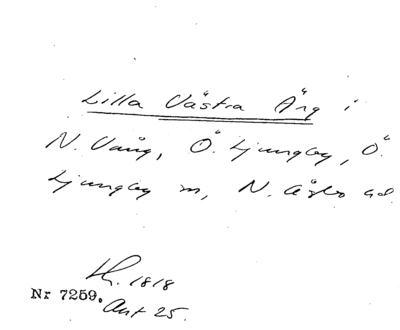 Lilla Västra Äng i
N. Vång, Ö. Ljungby, Ö.
Ljungby sn, N. Åsbo hd.
H. 1818
Nr 7259. Akt 25.